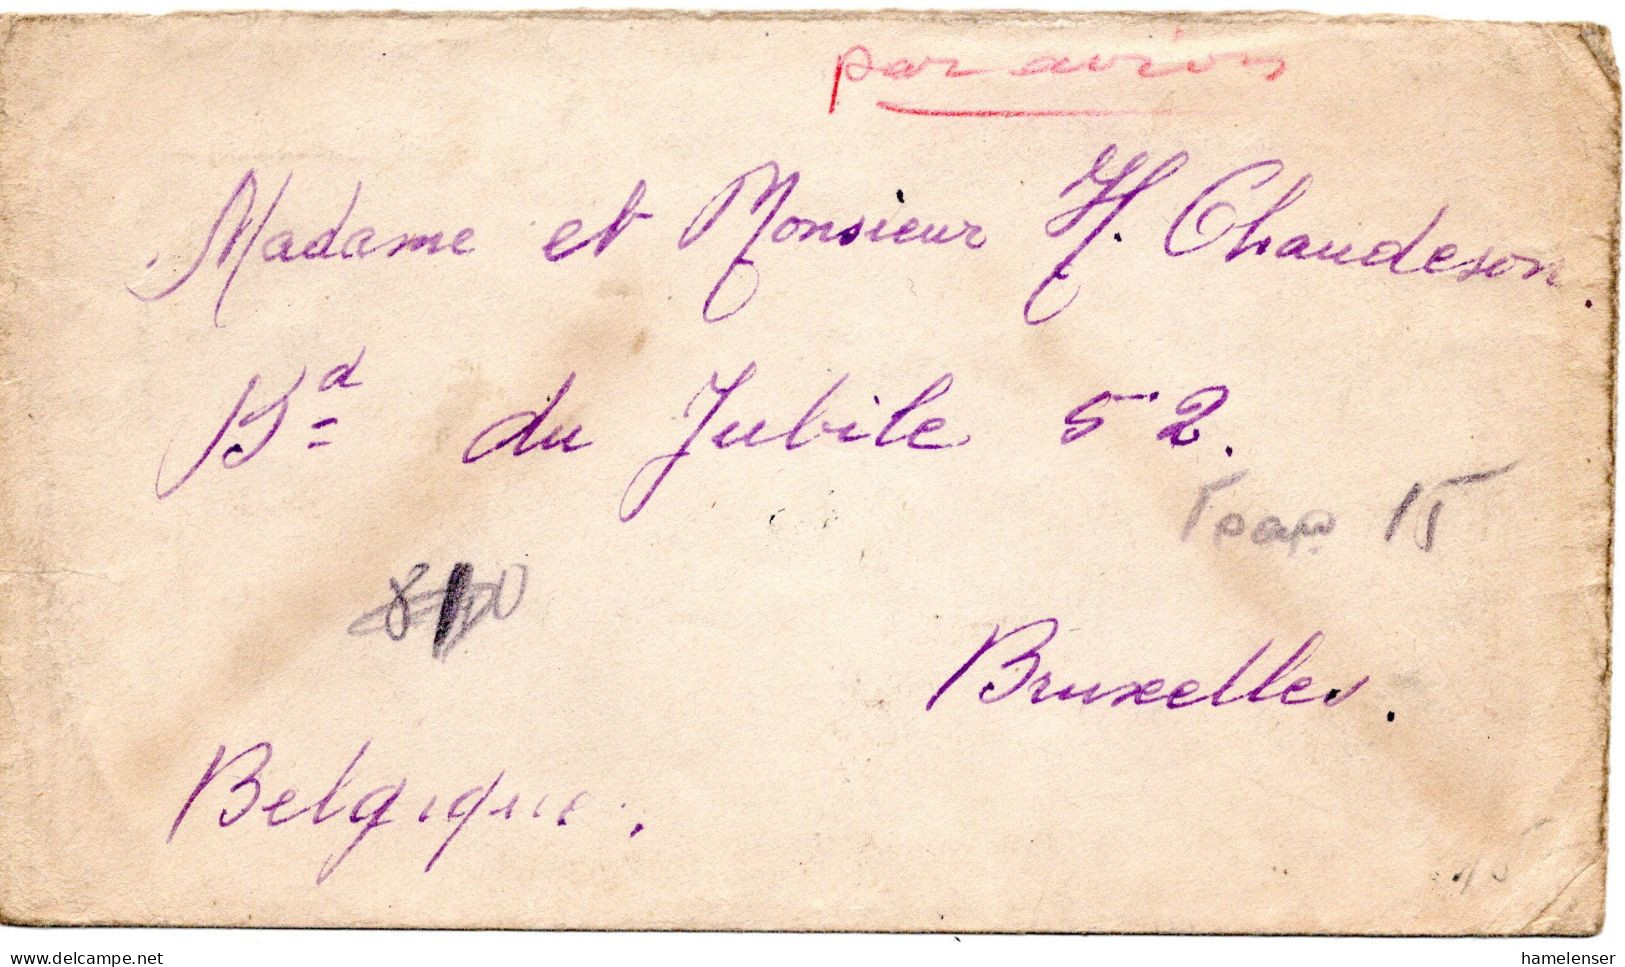 par avion
Madame et Monsieur H. Chaudeson.
Bd du Jubile 52.
15
Bruxelles.
Belgique.
15
delcampe.net
hamelenser